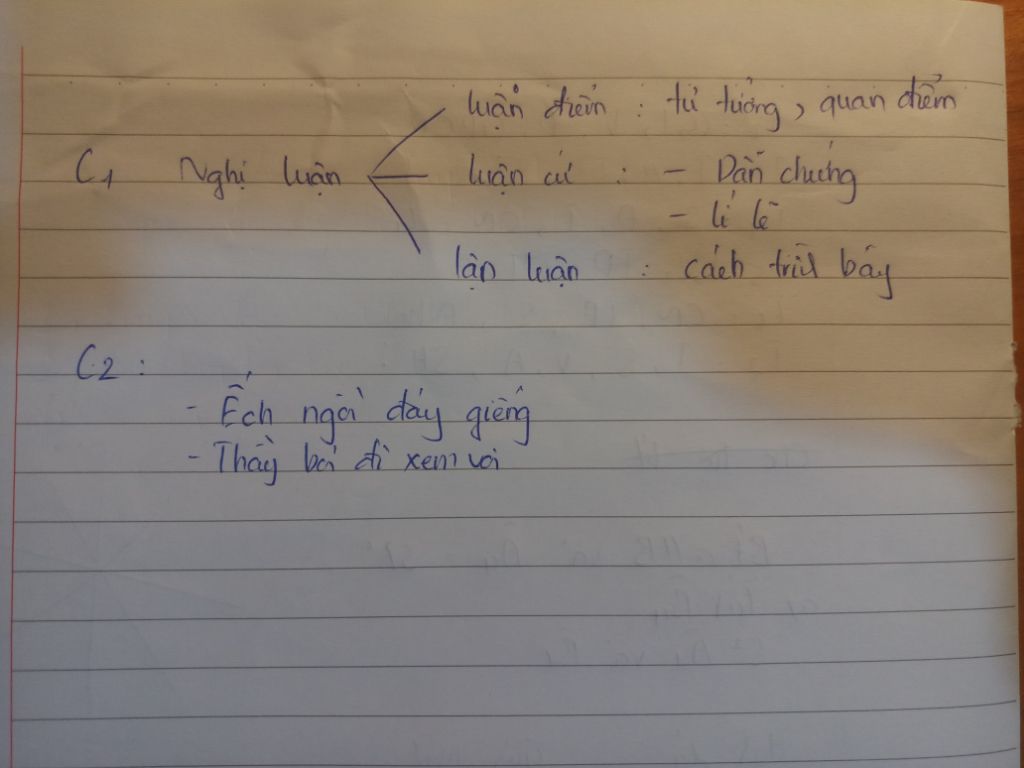 luận điểm : tư tưởng, quan điểm
C1 Nghị luận luận cứ : - Dẫn chứng
- lí lẽ
lập luận : cách trình bày
C2 :
- Ếch ngồi đáy giếng
- Thầy bói đi xem voi